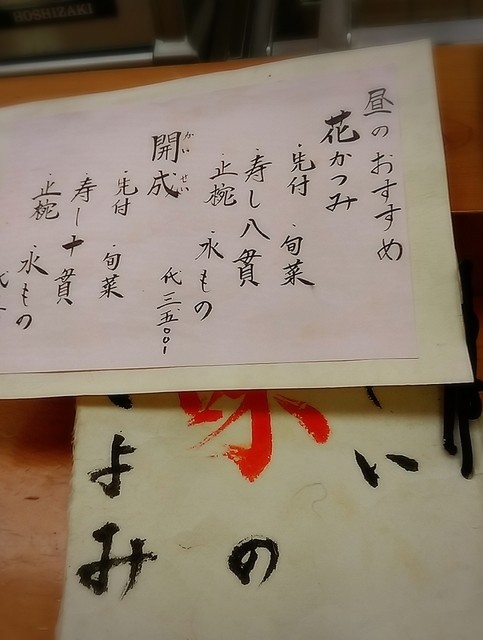 HOSHIZAKI
昼のおすすめ
花かつみ
・先付 ・旬菜
・寿し八貫
・止椀 ・水もの
代三、五〇〇ー
開成
かいせい
・先付 ・旬菜
・寿し十貫
・止椀 ・水もの
代
い
味の
よみ